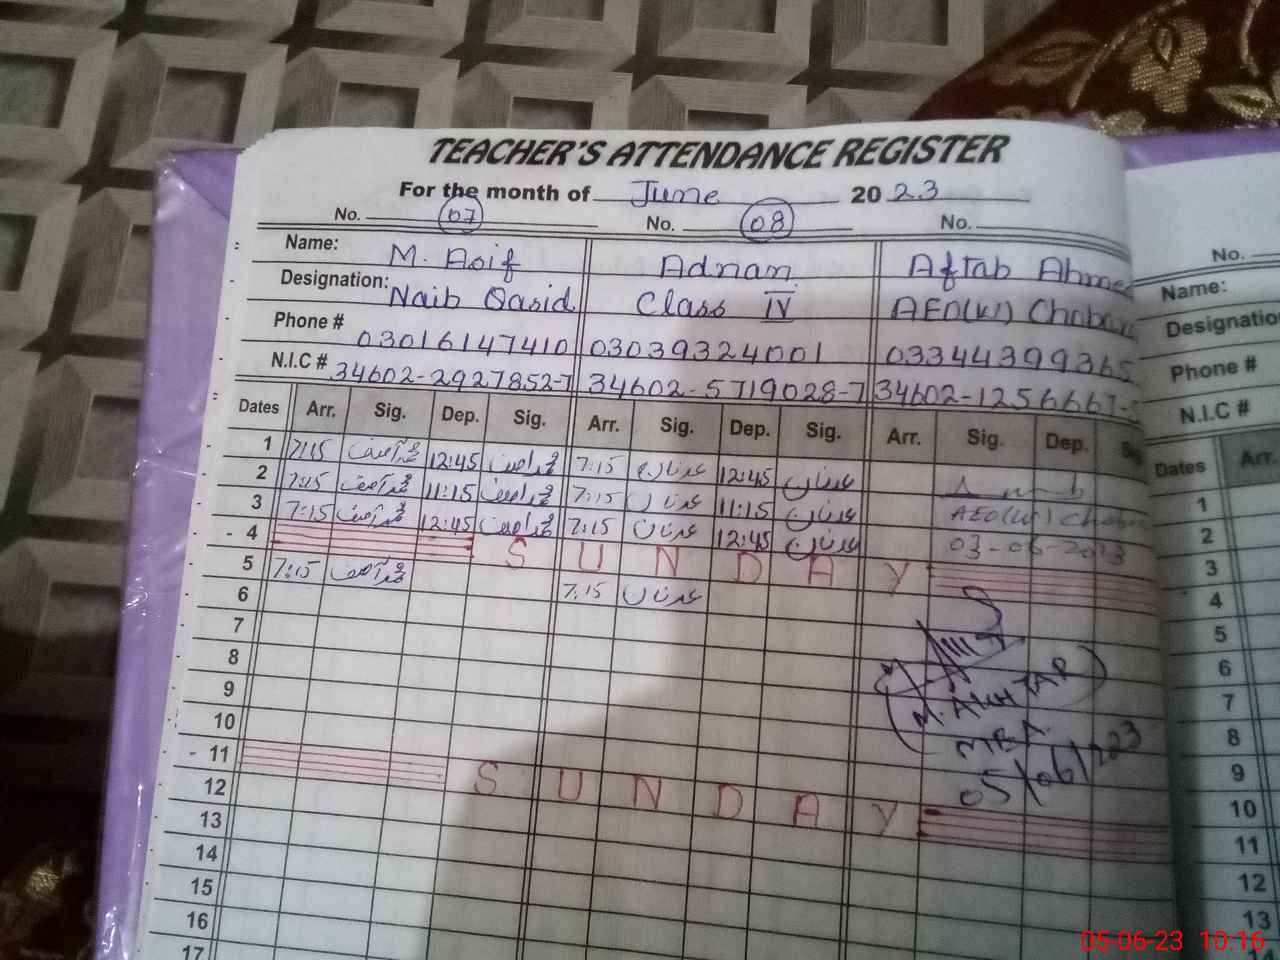 TEACHER'S ATTENDANCE REGISTER
For the month of June 2023
No. 07 No. 08 No.
Name: M. Asif Adnan Aftab Ahmed
Designation: Naib Qasid Class IV AEO(W)
Phone # 03016147410 03039324001 03344399365
N.I.C # 34602-2927852-7 34602-5719028-7 34602-1256667-
Dates Arr. Sig. Dep. Sig. Arr. Sig. Dep. Sig. Arr. Sig. Dep. Sig
1 7:15 12:45 7:15 عدنان 12:45 عدنان
2 7:15 11:15 7:15 عدنان 11:15 عدنان
3 7:15 12:45 7:15 عدنان 12:45 عدنان AEO(W)
03-06-2023
4 SUNDAY
5 7:15 7:15 عدنان
6
7
8
9
M. AKHTAR
10
MEA
05/06/223
11 SUNDAY
12
13
14
15
16
17
No.
Name:
Designatio
Phone #
N.I.C #
Dates Arr.
1
2
3
4
5
6
7
8
9
10
11
12
13
14
05-06-23 10:16